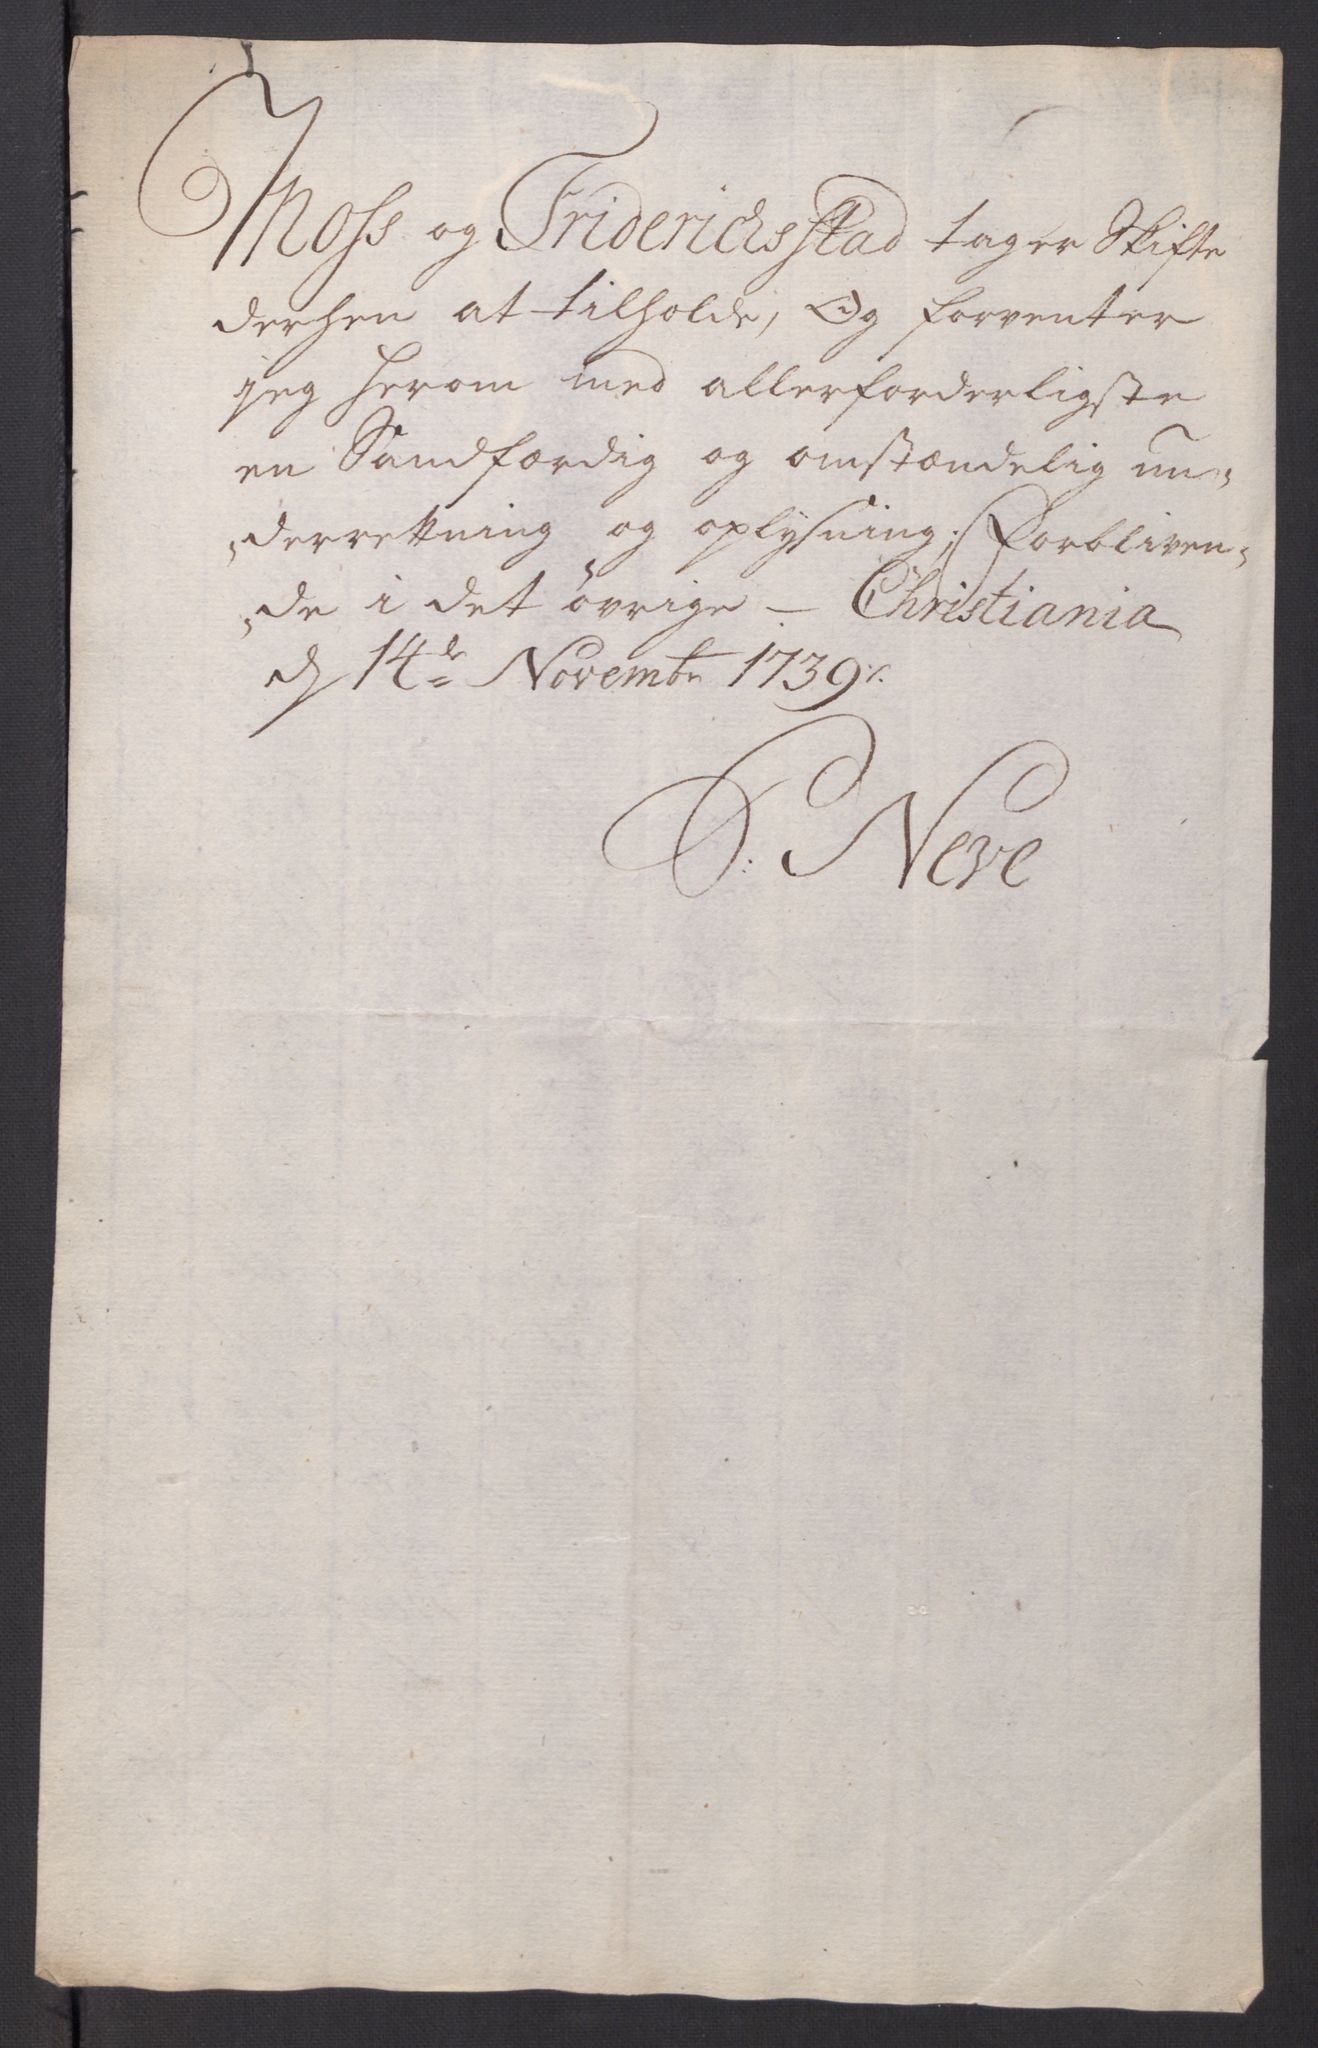 Moss og FriderichsStad tager Skifte
derhen at tilholde, Og forventer
jeg herom med allerforderligste
en Sandfærdig og omstændelig un-
derrettning og oplysning; forbliven-
de i det øvrige — Christiania
d 14de Novembr 1739
S: Neve